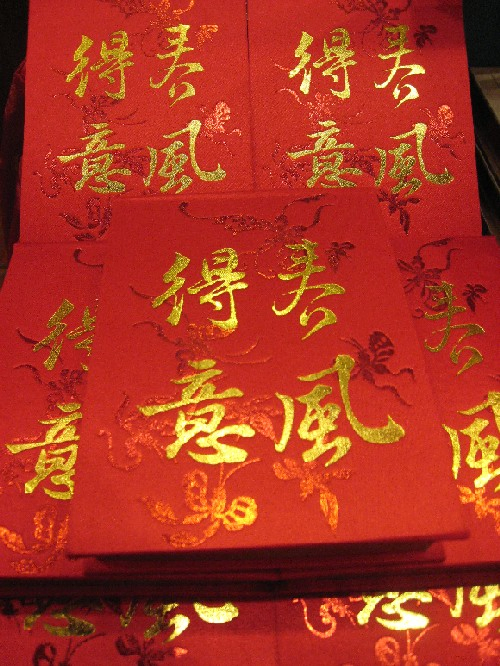 春風
得意
春風
得意
春風
得意
得意
春風